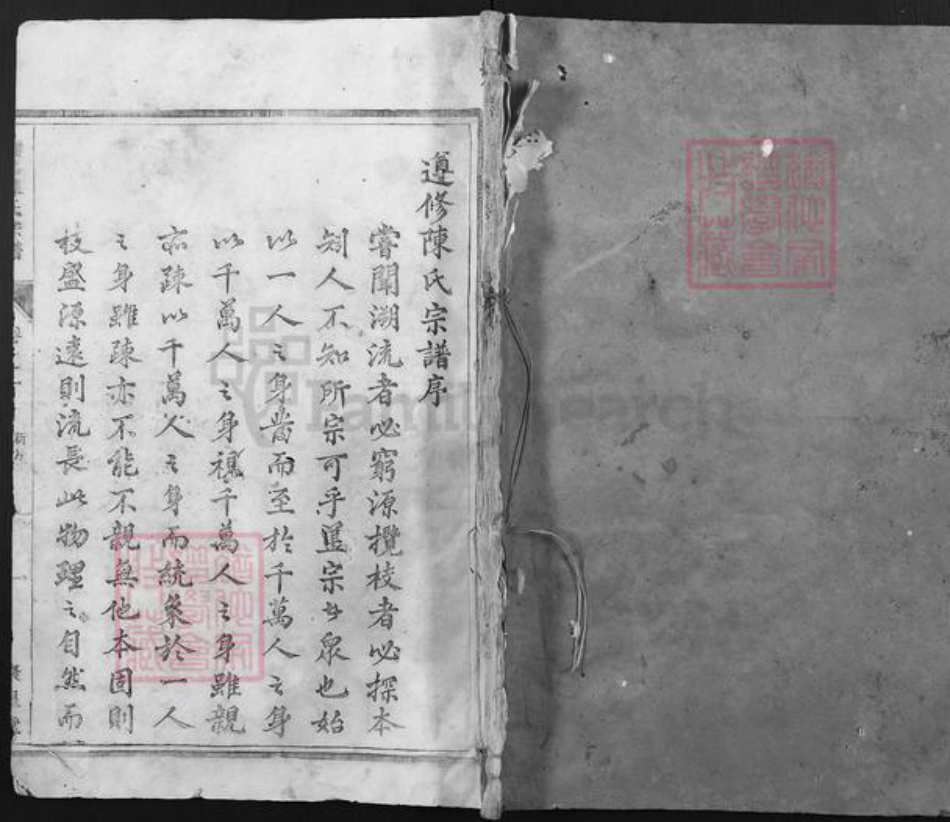 遵修陳氏宗譜序
嘗聞溯流者必窮源攬枝者必探本
矧人不知所宗可乎蓋宗者衆也始
以一人之身嗇而至於千萬人之身
以千萬人之身視千萬人之身雖親
亦疎以千萬人之身而統系於一人
之身雖疎亦不能不親無他本固則
枝盛源遠則流長此物理之自然而
FamilySearch